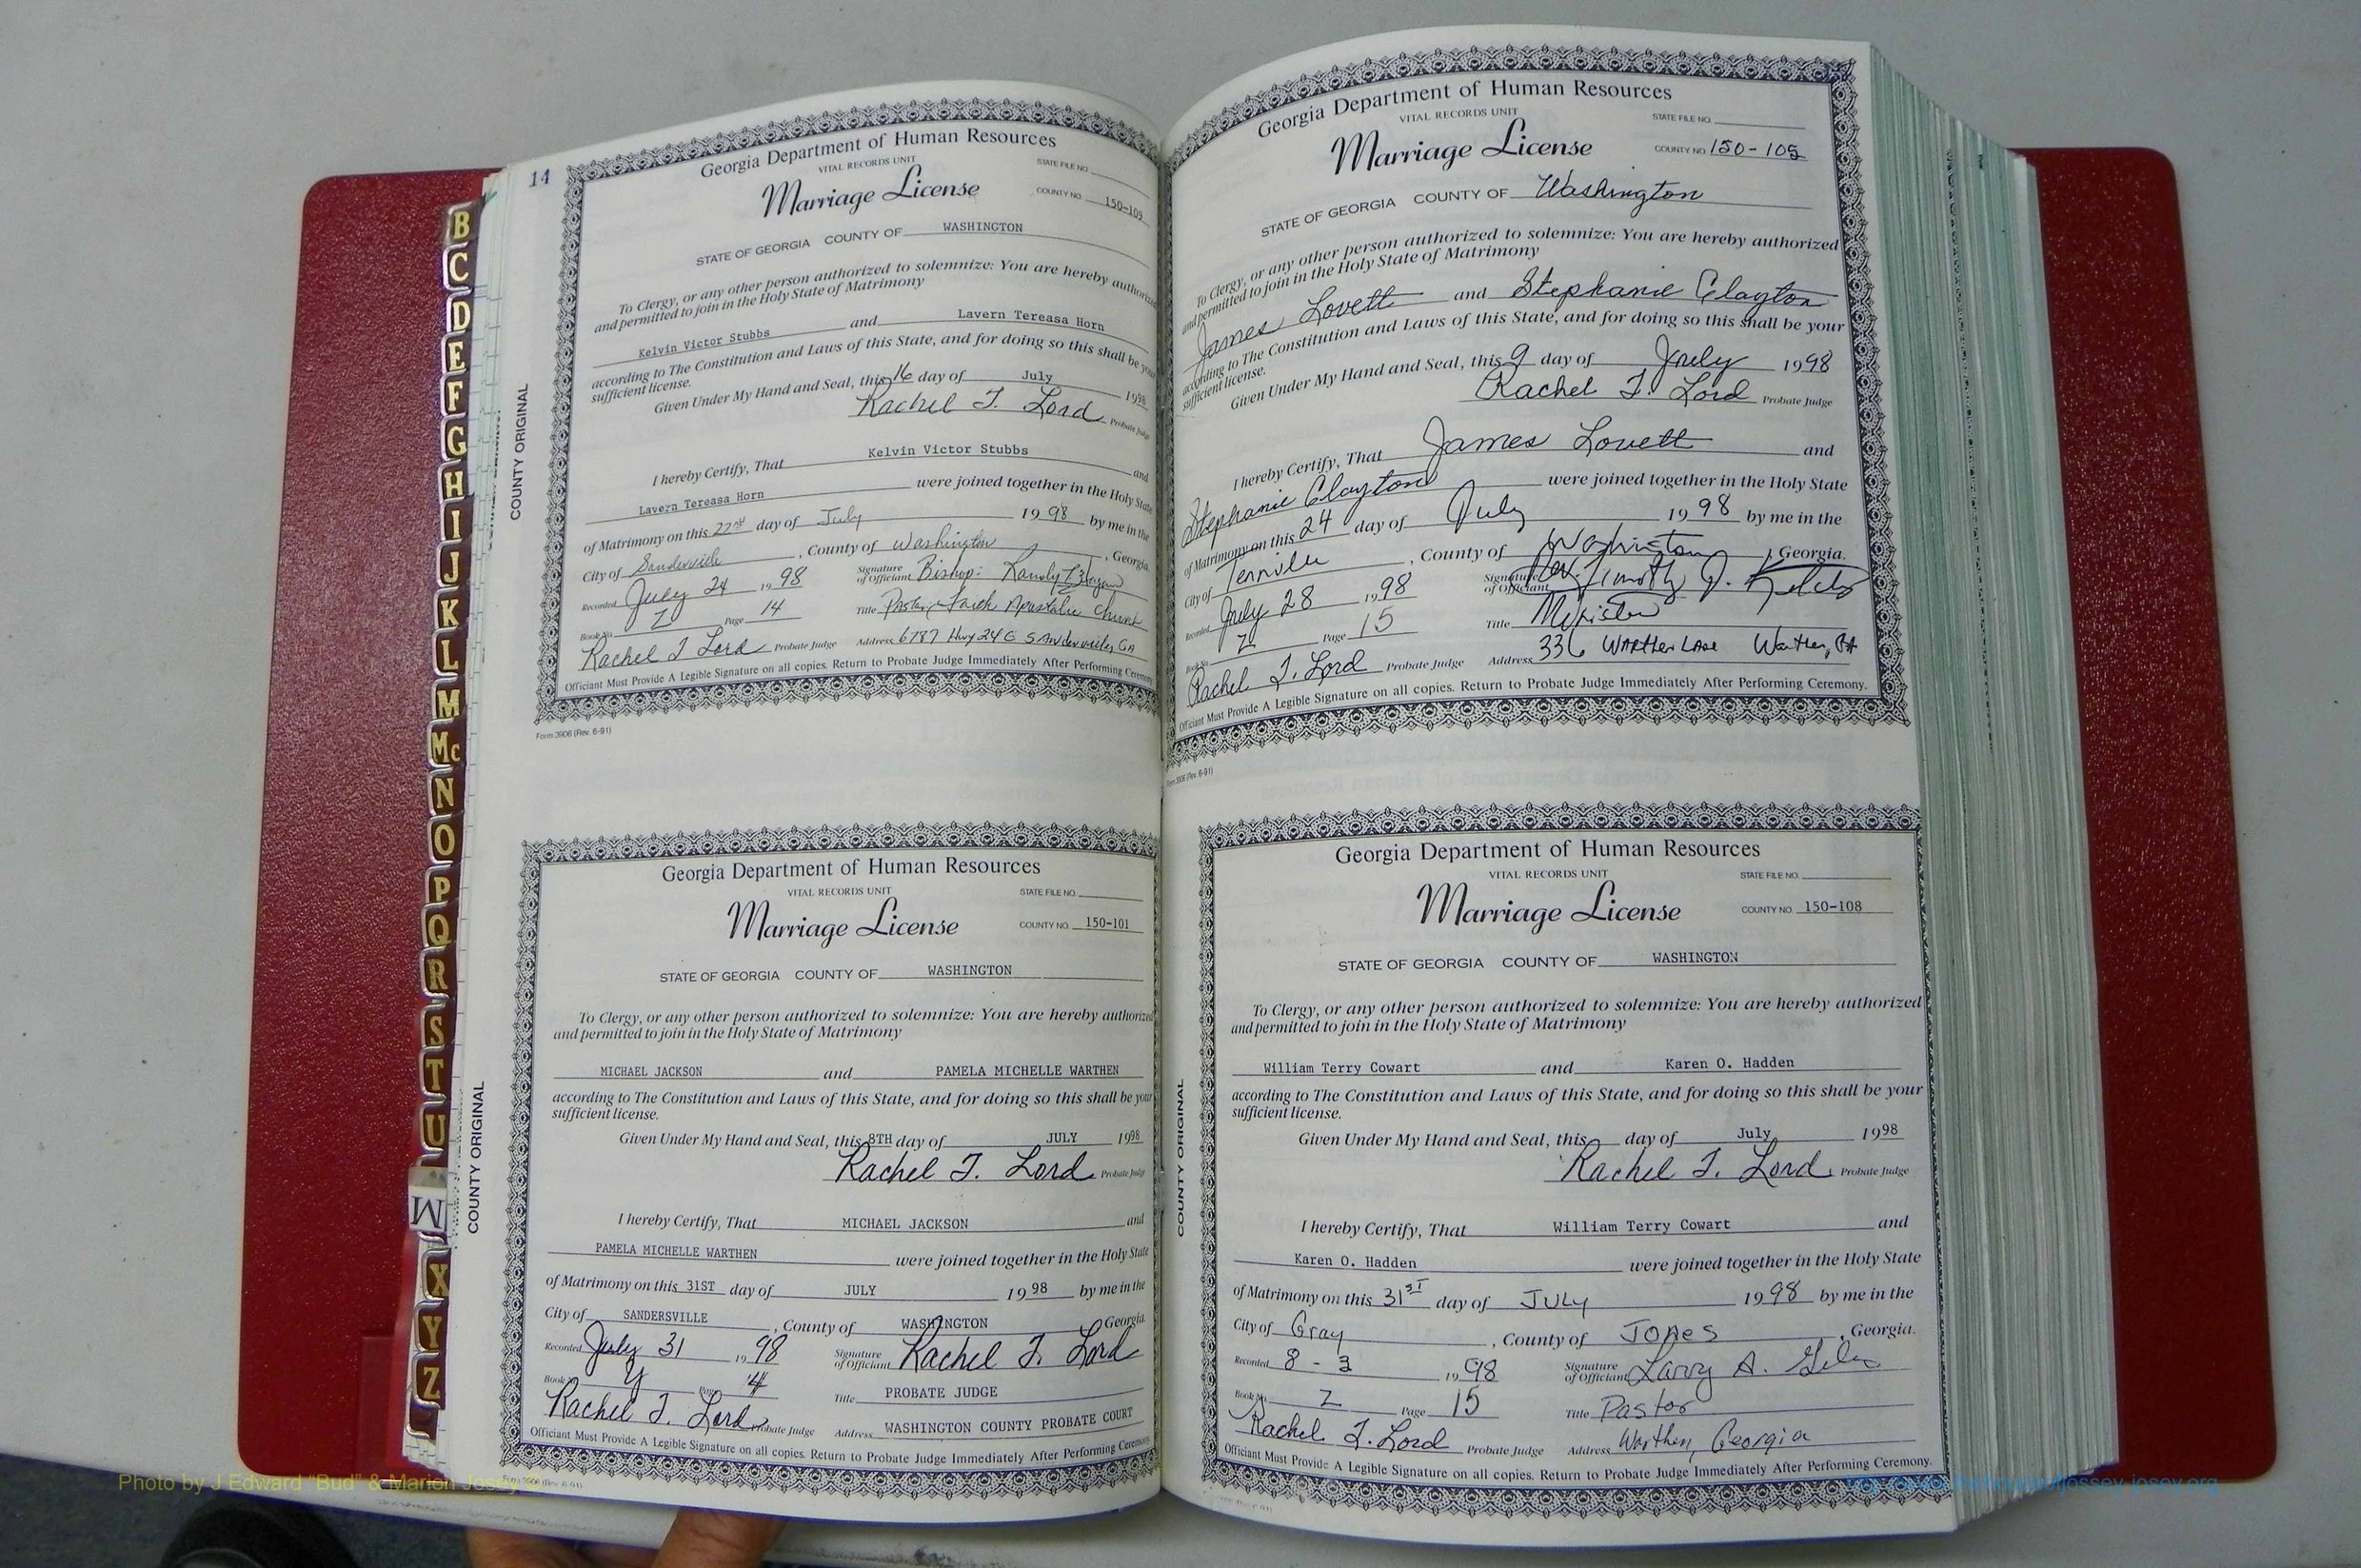 14
B
C
D
E
F
G
H
I
J
K
L
M
Mc
N
O
P
Q
R
S
T
U
W
X
Y
Z
COUNTY ORIGINAL
Georgia Department of Human Resources
VITAL RECORDS UNIT
STATE FILE NO.
Marriage License
COUNTY NO. 150-109
STATE OF GEORGIA COUNTY OF WASHINGTON
To Clergy, or any other person authorized to solemnize: You are hereby authorized
and permitted to join in the Holy State of Matrimony
Kelvin Victor Stubbs and Lavern Tereasa Horn
according to The Constitution and Laws of this State, and for doing so this shall be your
sufficient license.
Given Under My Hand and Seal, this 16 day of July 1998
Rachel T. Lord Probate Judge
I hereby Certify, That Kelvin Victor Stubbs and
Lavern Tereasa Horn were joined together in the Holy State
of Matrimony on this 22nd day of July 1998 by me in the
City of Sandersville, County of Washington, Georgia
Recorded July 24 1998 Signature of Officiant Bishop: Randy
Book No. Z Page 14 Title Pastor, Faith Apostolic Church
Rachel T Lord Probate Judge Address 6787 Hwy 24 E Sandersville, GA
Officiant Must Provide A Legible Signature on all copies. Return to Probate Judge Immediately After Performing Ceremony
Form 3906 (Rev. 6-91)
COUNTY ORIGINAL
Georgia Department of Human Resources
VITAL RECORDS UNIT
STATE FILE NO.
Marriage License
COUNTY NO. 150-101
STATE OF GEORGIA COUNTY OF WASHINGTON
To Clergy, or any other person authorized to solemnize: You are hereby authorized
and permitted to join in the Holy State of Matrimony
MICHAEL JACKSON and PAMELA MICHELLE WARTHEN
according to The Constitution and Laws of this State, and for doing so this shall be your
sufficient license.
Given Under My Hand and Seal, this 8TH day of JULY 1998
Rachel T. Lord Probate Judge
I hereby Certify, That MICHAEL JACKSON and
PAMELA MICHELLE WARTHEN were joined together in the Holy State
of Matrimony on this 31ST day of JULY 1998 by me in the
City of SANDERSVILLE, County of WASHINGTON Georgia.
Recorded July 31 1998 Signature of Officiant Rachel T. Lord
Book No. Y Page 4 Title PROBATE JUDGE
Rachel T. Lord Probate Judge Address WASHINGTON COUNTY PROBATE COURT
Officiant Must Provide A Legible Signature on all copies. Return to Probate Judge Immediately After Performing Ceremony
Form 3906 (Rev. 6-91)
Georgia Department of Human Resources
VITAL RECORDS UNIT
STATE FILE NO.
Marriage License
COUNTY NO. 150-105
STATE OF GEORGIA COUNTY OF Washington
To Clergy, or any other person authorized to solemnize: You are hereby authorized
and permitted to join in the Holy State of Matrimony
James Lovett and Stephanie Clayton
according to The Constitution and Laws of this State, and for doing so this shall be your
sufficient license.
Given Under My Hand and Seal, this 9 day of July 1998
Rachel T. Lord Probate Judge
I hereby Certify, That James Lovett and
Stephanie Clayton were joined together in the Holy State
of Matrimony on this 24 day of July 1998 by me in the
City of Tennille, County of Washington, Georgia.
Recorded July 28 1998 Signature of Officiant Rev. Timothy J.
Book No. Z Page 15 Title Minister
Rachel T. Lord Probate Judge Address 336 Warthen Lane Warthen, GA
Officiant Must Provide A Legible Signature on all copies. Return to Probate Judge Immediately After Performing Ceremony.
Form 3906 (Rev. 6-91)
COUNTY ORIGINAL
Georgia Department of Human Resources
VITAL RECORDS UNIT
STATE FILE NO.
Marriage License
COUNTY NO. 150-108
STATE OF GEORGIA COUNTY OF WASHINGTON
To Clergy, or any other person authorized to solemnize: You are hereby authorized
and permitted to join in the Holy State of Matrimony
William Terry Cowart and Karen O. Hadden
according to The Constitution and Laws of this State, and for doing so this shall be your
sufficient license.
Given Under My Hand and Seal, this day of July 1998
Rachel T. Lord Probate Judge
I hereby Certify, That William Terry Cowart and
Karen O. Hadden were joined together in the Holy State
of Matrimony on this 31ST day of JULY 1998 by me in the
City of Gray, County of Jones, Georgia.
Recorded 8-3 1998 Signature of Officiant Larry A.
Book No. Z Page 15 Title Pastor
Rachel T. Lord Probate Judge Address Warthen, Georgia
Officiant Must Provide A Legible Signature on all copies. Return to Probate Judge Immediately After Performing Ceremony.
Photo by J Edward "Bud" & Marion Josey ©